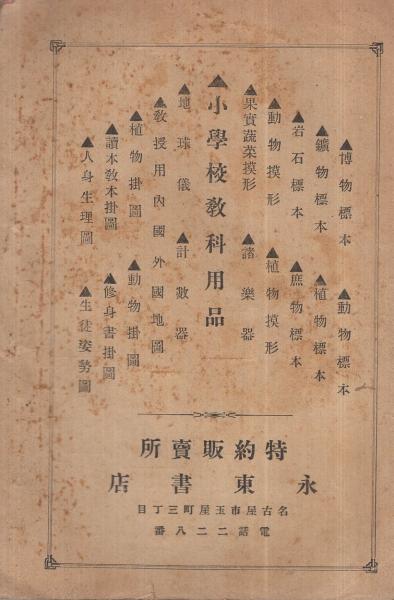 ▲博物標本　▲動物標本
▲鑛物標本　▲植物標本
▲岩石標本　▲庶物標本
▲動物摸形　▲植物摸形
▲果實蔬菜摸形　▲諸樂器
▲小學校敎科用品
▲地球儀　▲計數器
▲敎授用內國外國地圖
▲植物掛圖　▲動物掛圖
▲讀本敎本掛圖　▲修身書掛圖
▲人身生理圖　▲生徒姿勢圖
特約販賣所
永東書店
名古屋市玉屋町三丁目
電話二二八番